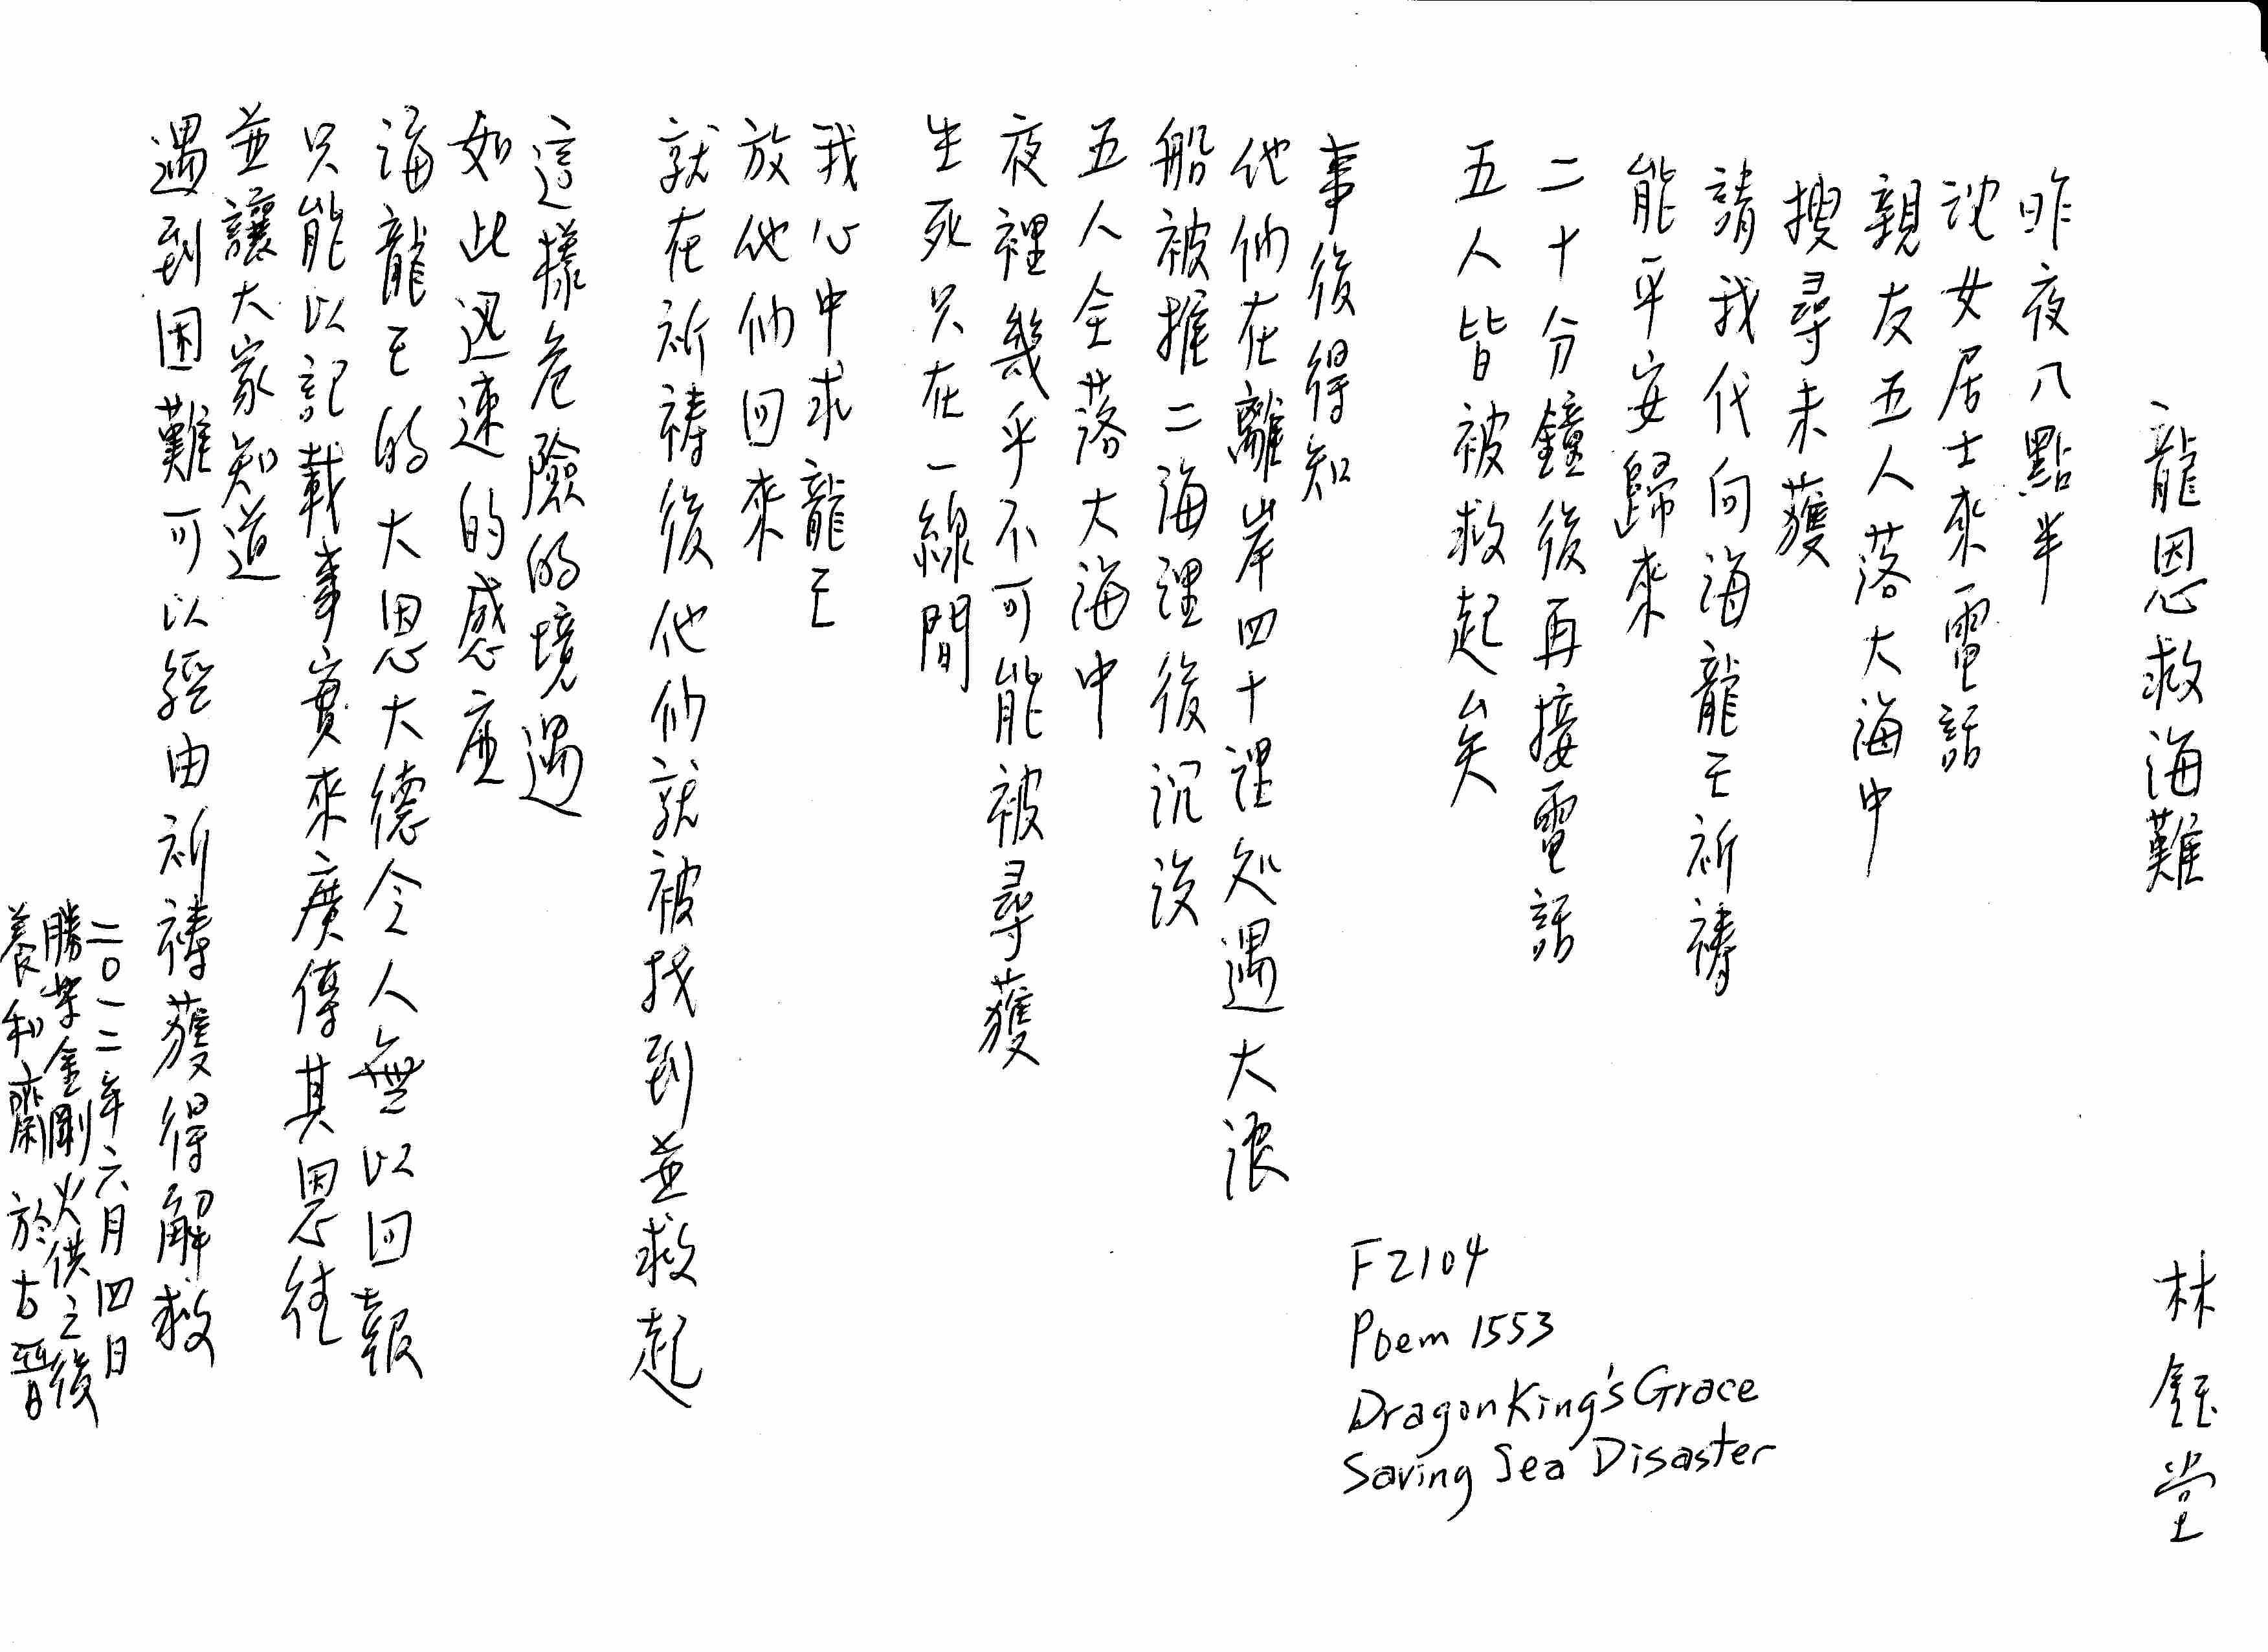 龍恩救海難
林鈺堂
昨夜八點半
沈女居士來電話
親友五人落大海中
搜尋未獲
請我代向海龍王祈禱
能平安歸來
二十分鐘後再接電話
五人皆被救起矣
事後得知
他們在離岸四十浬処遇大浪
船被推二海浬後沉沒
五人全落大海中
夜裡幾乎不可能被尋獲
生死只在一線間
我心中求龍王
放他們回來
就在祈禱後他們就被找到並救起
這樣危險的境遇
如此迅速的感應
海龍王的大恩大德令人無以回報
只能以記載事實來廣傳其恩德
並讓大家知道
遇到困難可以經由祈禱獲得解救
二〇一二年六月四日
勝樂金剛火供之後
養和齋 於古晉
F2104
Poem 1553
Dragon King's Grace
Saving Sea Disaster